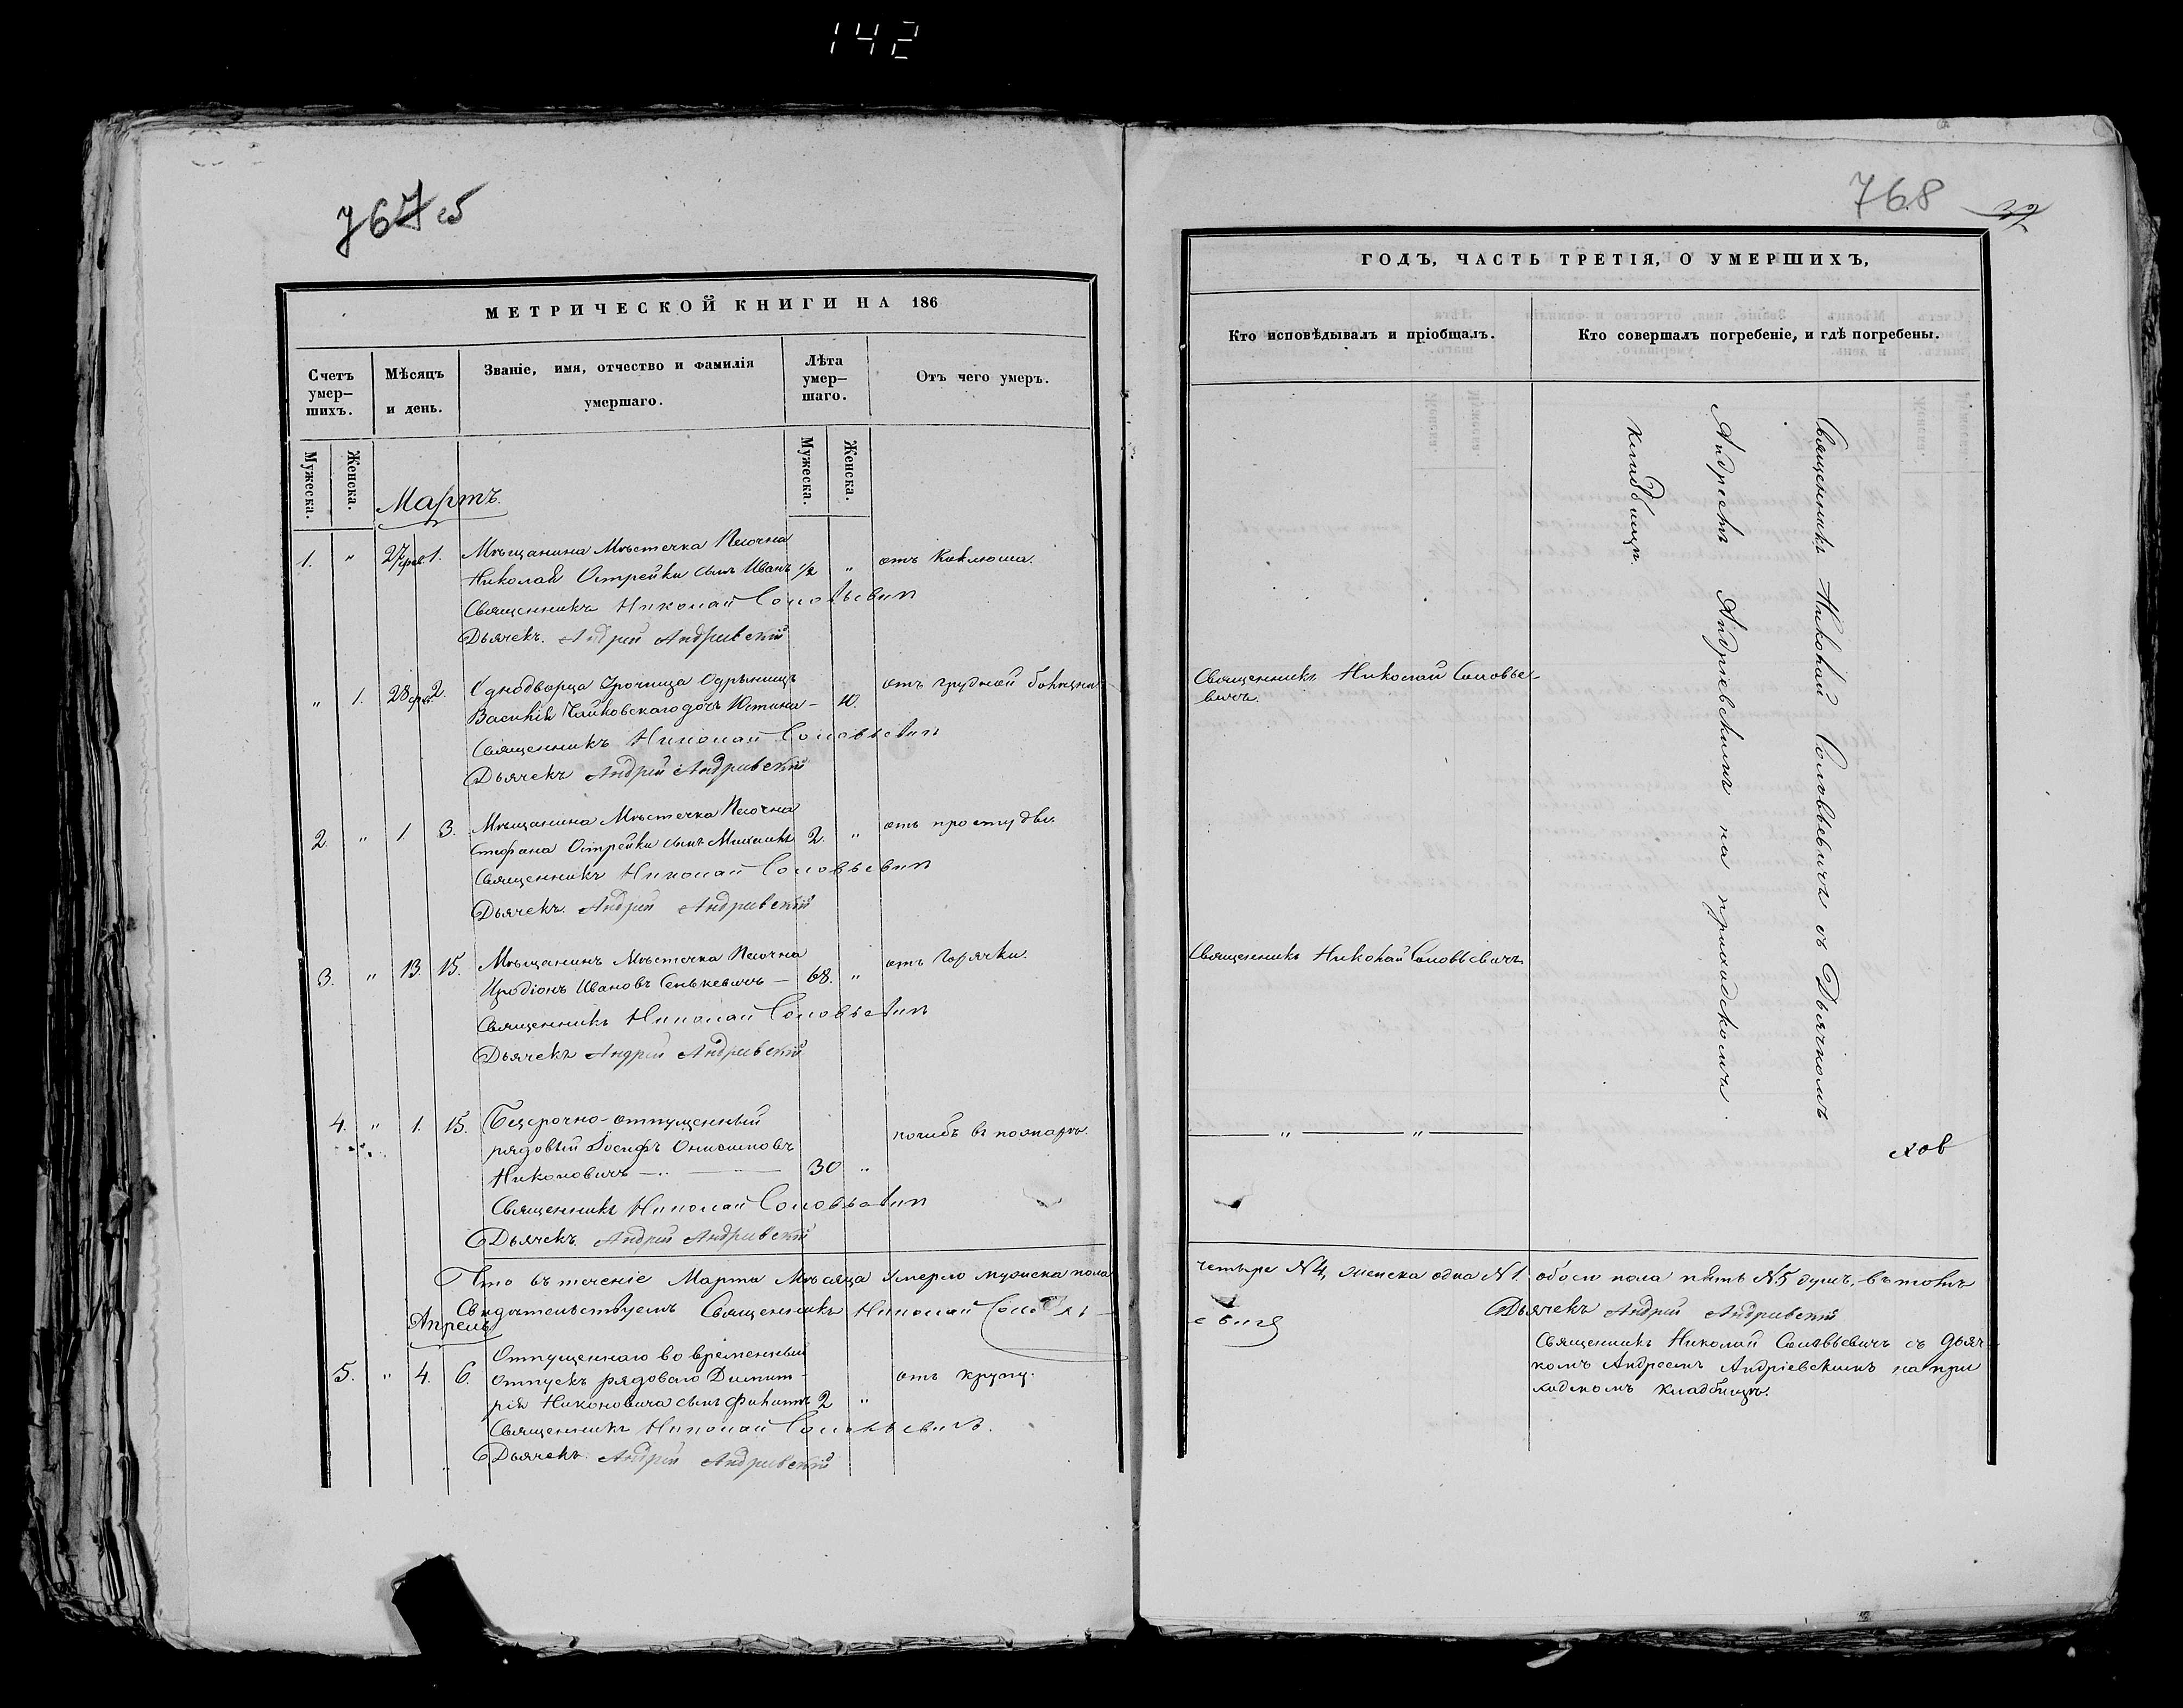 142
767 об
МЕТРИЧЕСКОЙ КНИГИ НА 186
Счетъ умер-шихъ.
Мѣсяцъ и день.
Званіе, имя, отчество и фамилія умершаго.
Лѣта умер-шаго.
Отъ чего умеръ.
Мужеска.
Женска.
Мужеска.
Женска.
Мартъ.
1. " 27 фев. 1. Мѣщанина Мѣстечка Песочна
Николай Острейки сынъ Иванъ 1/2 " отъ Коклюша.
Священникъ Николай Соловьевич
Дьячекъ. Андрей Андриевский
" 1. 28 фев. 2. Однодворца Урочища Одрыницъ отъ грудной болѣзни
Василія Чайковскаго дочь Юстина – 10.
Священникъ Николай Соловьевич
Дьячекъ Андрей Андриевский
2. " 1 3. Мѣщанина Мѣстечка Песочна
Стефана Острейки сынъ Михаилъ 2. " отъ простуды.
Священникъ Николай Соловьевич
Дьячекъ. Андрей Андриевский
3. " 13 15. Мѣщанинъ Мѣстечка Песочна отъ Горячки.
Иродіонъ Ивановъ Сенькевичъ – 68. "
Священникъ Николай Соловьевич
Дьячекъ Андрей Андриевский
4. " 1. 15. Безсрочно-отпущенный
рядовый Іосифъ Онисимовъ погибъ въ пожарѣ.
Никоновичъ 30 "
Священникъ Николай Соловьевич
Дьячекъ. Андрей Андриевский
Что въ теченіе Марта Мѣсяца умерло мужеска пола
Свидѣтельствуемъ Священникъ Николай Соловь-
Апрель
Отпущеннаго во временный
5. " 4. 6. отпускъ рядоваго Димит- отъ крупу.
рія Никоновича сынъ Филиппъ 2 "
Священникъ Николай Соловьевичъ.
Дьячекъ Андрей Андриевский
768
ГОДЪ, ЧАСТЬ ТРЕТІЯ, О УМЕРШИХЪ,
Кто исповѣдывалъ и пріобщалъ.
Кто совершалъ погребеніе, и гдѣ погребены.
Священникъ Николай Соловьевичъ съ Дьячкомъ
Андреемъ Андріевскимъ на приходскомъ
кладбищѣ.
Священникъ Николай Соловье-
вичъ.
Священникъ Николай Соловьевичъ
" "
четыре N4, женска одна N1. обоего пола пять N5 душъ, въ томъ
евичъ
Дьячекъ Андрей Андриевский
Священникъ Николай Соловьевичъ съ Дьяч-
комъ Андреемъ Андріевскимъ на при
ходскомъ кладбищѣ.